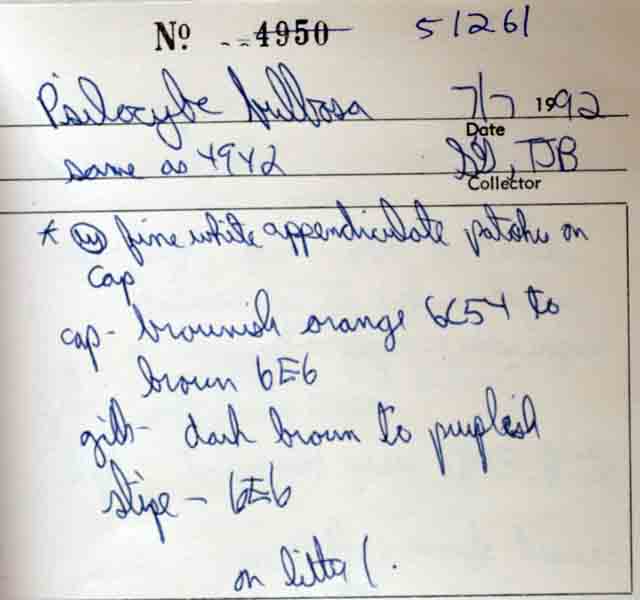 Nº. 4950 51261
Psilocybe bulbosa 7/7 1992
Date
same as 4942 TJB
Collector
* (w) fine white appendiculate patches on
cap
cap - brownish orange 6C54 to
brown 6E6
gills - dark brown to purplish
stipe - 6E6
on litter